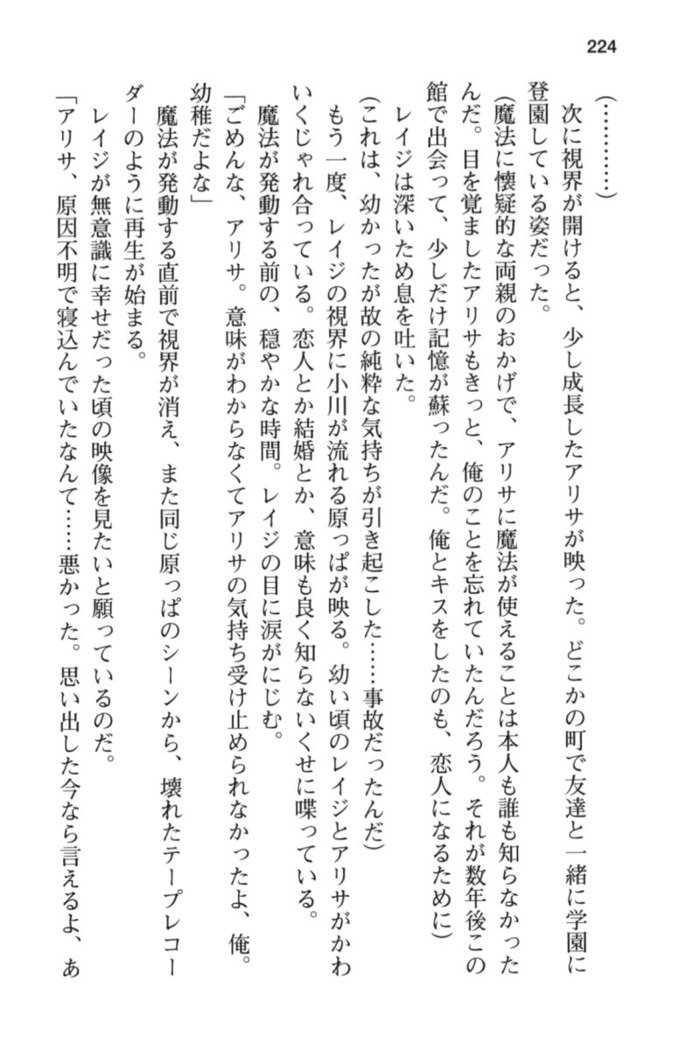 224
(…………)
　次に視界が開けると、少し成長したアリサが映った。どこかの町で友達と一緒に学園に
登園している姿だった。
(魔法に懐疑的な両親のおかげで、アリサに魔法が使えることは本人も誰も知らなかった
んだ。目を覚ましたアリサもきっと、俺のことを忘れていたんだろう。それが数年後この
館で出会って、少しだけ記憶が蘇ったんだ。俺とキスをしたのも、恋人になるために)
　レイジは深いため息を吐いた。
(これは、幼かったが故の純粋な気持ちが引き起こした……事故だったんだ)
　もう一度、レイジの視界に小川が流れる原っぱが映る。幼い頃のレイジとアリサがかわ
いくじゃれ合っている。恋人とか結婚とか、意味も良く知らないくせに喋っている。
　魔法が発動する前の、穏やかな時間。レイジの目に涙がにじむ。
「ごめんな、アリサ。意味がわからなくてアリサの気持ち受け止められなかったよ、俺。
幼稚だよな」
　魔法が発動する直前で視界が消え、また同じ原っぱのシーンから、壊れたテープレコー
ダーのように再生が始まる。
　レイジが無意識に幸せだった頃の映像を見たいと願っているのだ。
「アリサ、原因不明で寝込んでいたなんて……悪かった。思い出した今なら言えるよ、あ